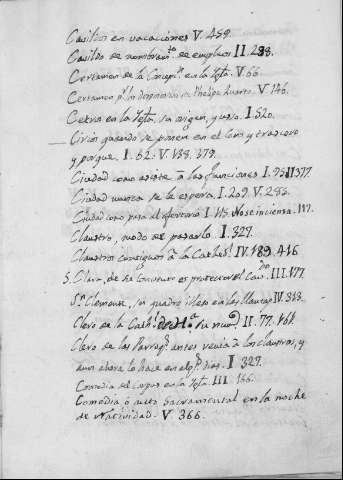 Cavildos en vacaciones V. 459.
Cavildo de nombram.to de empleos II. 288.
Certamen de la Concep.n en la Igla. V. 66.
Certamen p.r los desposorios de Phelipe Quarto. V. 146.
Cetros en la Igla, su origen, y uso. I. 520.
Cirios quando se ponen en el Coro y trascoro
y porque. I. 62. V. 138. 379.
Ciudad como asiste à las funciones I. 95. II. 377.
Ciudad nunca se la espera. I. 209. V. 283.
Ciudad como para al ofertorio I. 115. No se inciensa. 117.
Claustro, modo de pasarlo I. 327.
Claustros contiguos à la Cathe.l IV. 189. 416
S. Clara, de su Convento es protector el Cav.do III. 177.
S.n Clemente, su quadro en las IV. 313.
Clero de la Cath.l de su II. 77. 161.
Clero de las Parroq.s antes venia à los claustros, y
aun ahora lo hace en alg.s dias. I. 327.
Comedia del Corpus en la Igla. III. 166.
Comedia ò auto Sacramental en la noche
de Natividad. V. 366.